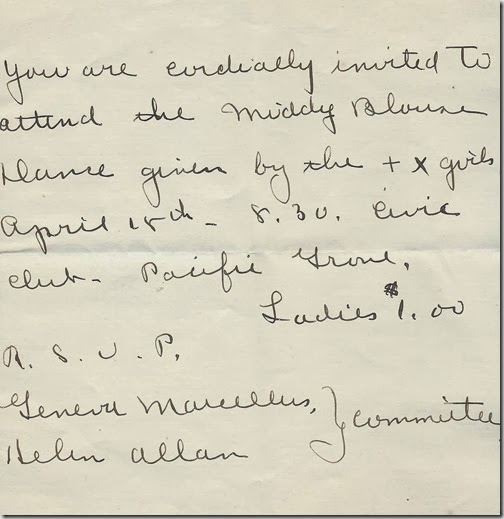 You are cordially invited to
attend the Middy Blouse
Dance given by the + x girls
April 18th - 8.30. Civic
Club - Pacific Grove,
Ladies $1.00
R. S. V. P.
Geneva Marcellus, } Committee
Helen Allan